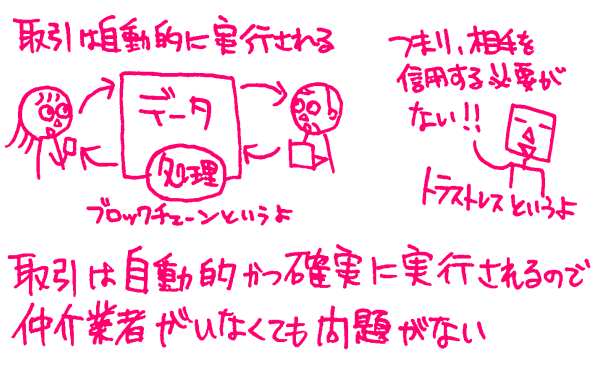 取引は自動的に実行される
つまり、相手を
信用する必要が
ない!!
データ
処理
ブロックチェーンというよ
トラストレスというよ
取引は自動的かつ確実に実行されるので
仲介業者がいなくても問題がない